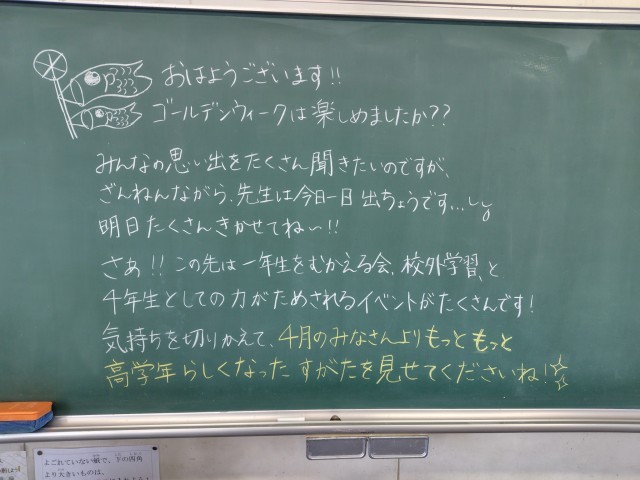 おはようございます!!
ゴールデンウィークは楽しめましたか??
みんなの思い出をたくさん聞きたいのですが、
ざんねんながら、先生は今日一日出ちょうです...
明日たくさんきかせてね〜!!
さあ!!この先は一年生をむかえる会、校外学習、と
4年生としての力がためされるイベントがたくさんです!
気持ちを切りかえて、4月のみなさんよりもっともっと
高学年らしくなったすがたを見せてくださいね!☆☆
よごれていない紙で、下の四角
より大きいものは、